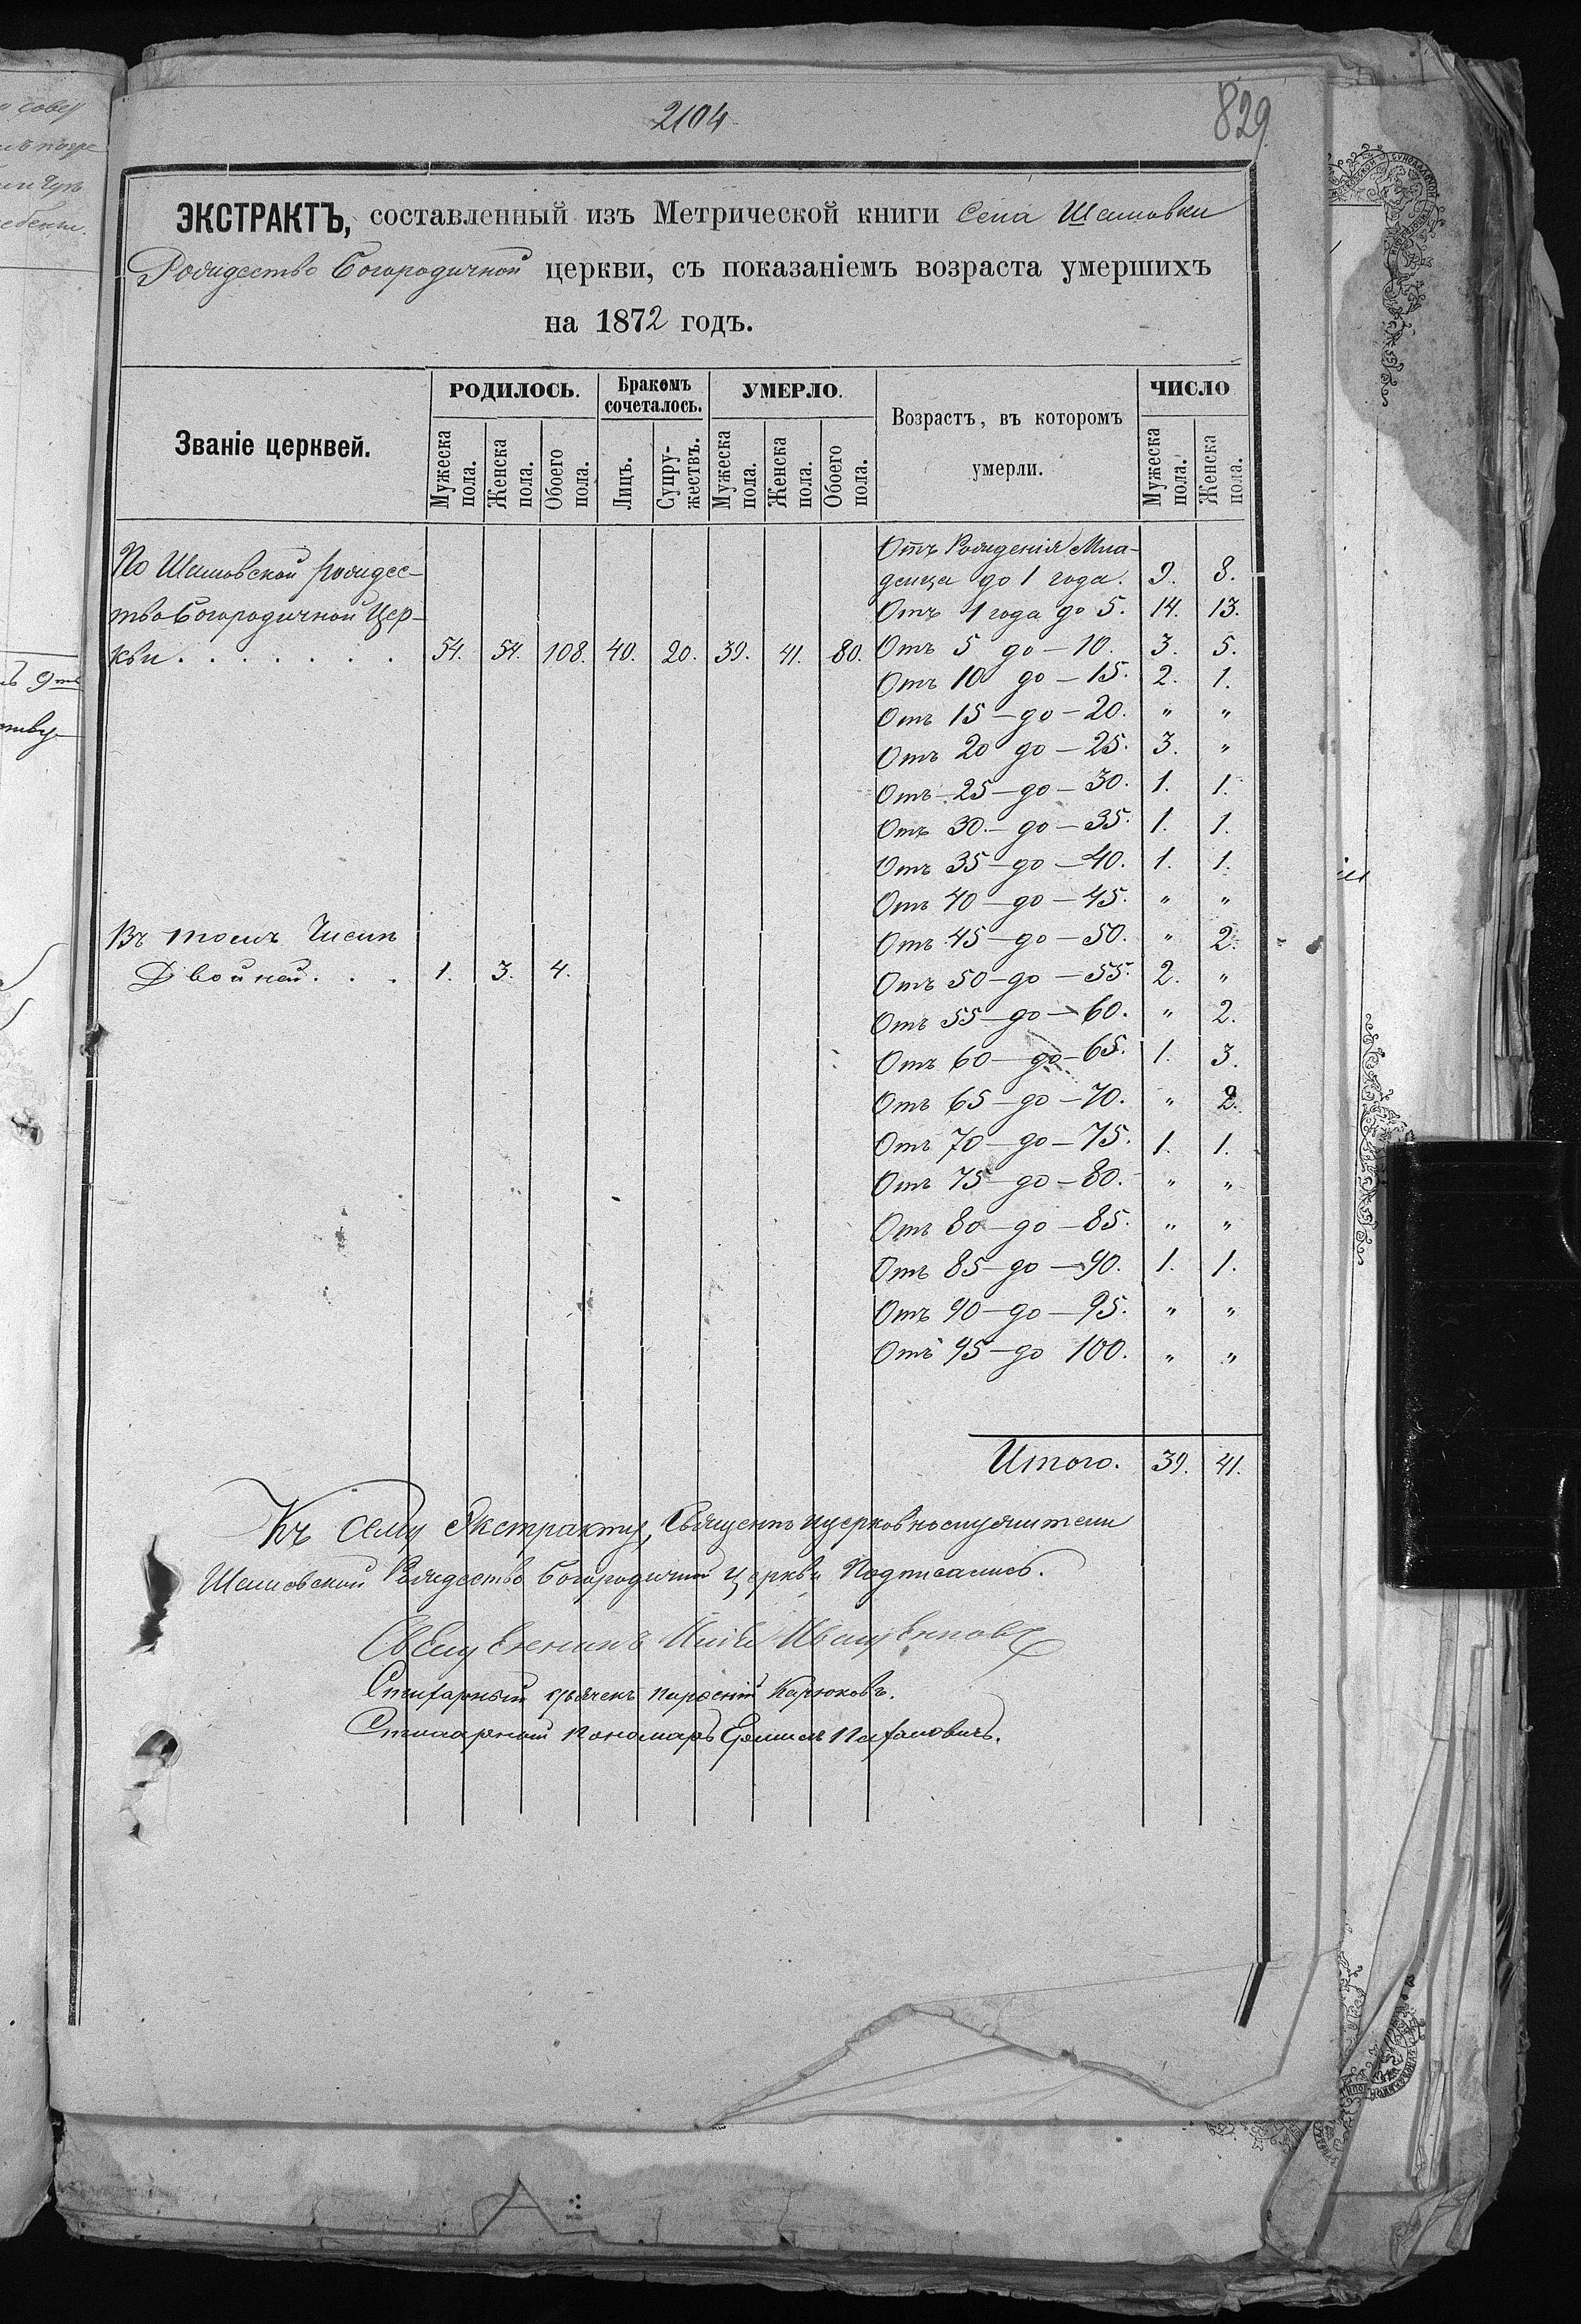 2104
829
ЭКСТРАКТЪ, составленный изъ Метрической книги Села Шамовки
Рождество Богородичной церкви, съ показаніемъ возраста умершихъ
на 1872 годъ.
Званіе церквей.
РОДИЛОСЬ.
Мужеска пола.
Женска пола.
Обоего пола.
Бракомъ сочеталось.
Лицъ.
Супру-жествъ.
УМЕРЛО.
Мужеска пола.
Женска пола.
Обоего пола.
Возрастъ, въ которомъ
умерли.
ЧИСЛО
Мужеска пола.
Женска пола.
По Шамовской Рождес-
тво Богородичной Цер-
кви . . . . . . . 54. 54. 108. 40. 20. 39. 41. 80.
Въ томъ Числѣ
Двойней . . . 1. 3. 4.
Отъ Рожденія Мла-
денца до 1 года. 9. 8.
Отъ 1 года до 5. 14. 13.
Отъ 5 до – 10. 3. 5.
Отъ 10 до – 15. 2. 1.
Отъ 15 – до – 20. „ „
Отъ 20 до – 25. 3. „
Отъ 25 – до – 30. 1. 1.
Отъ 30. – до – 35. 1. 1.
Отъ 35 – до – 40. 1. 1.
Отъ 40 – до – 45. „ „
Отъ 45 – до – 50. „ 2.
Отъ 50 – до – 55. 2. „
Отъ 55 – до – 60. „ 2.
Отъ 60 – до – 65. 1. 3.
Отъ 65 – до – 70. „ 2.
Отъ 70 – до – 75. 1. 1.
Отъ 75 – до – 80. „ „
Отъ 80 – до – 85. „ „
Отъ 85 – до – 90. 1. 1.
Отъ 90 – до – 95. „ „
Отъ 95 – до 100. „ „
Итого. 39. 41.
Къ сему Экстракту, Священно церковнослужители
Шамовской Рождество Богородичной Церкви Подписались.
Священникъ Илія
Стихарный дьячекъ
Стихарный пономарь